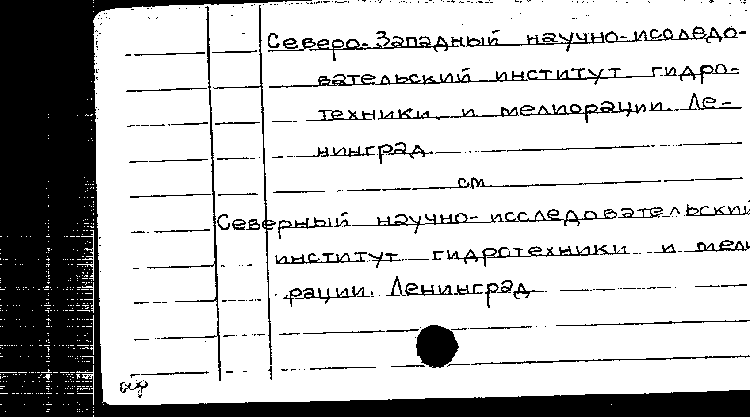 Северо-Западный научно-исследо-
вательский институт гидро-
техники и мелиорации. Ле-
нинград.
см.
Северный научно-исследовательский
институт гидротехники и мели
рации. Ленинград